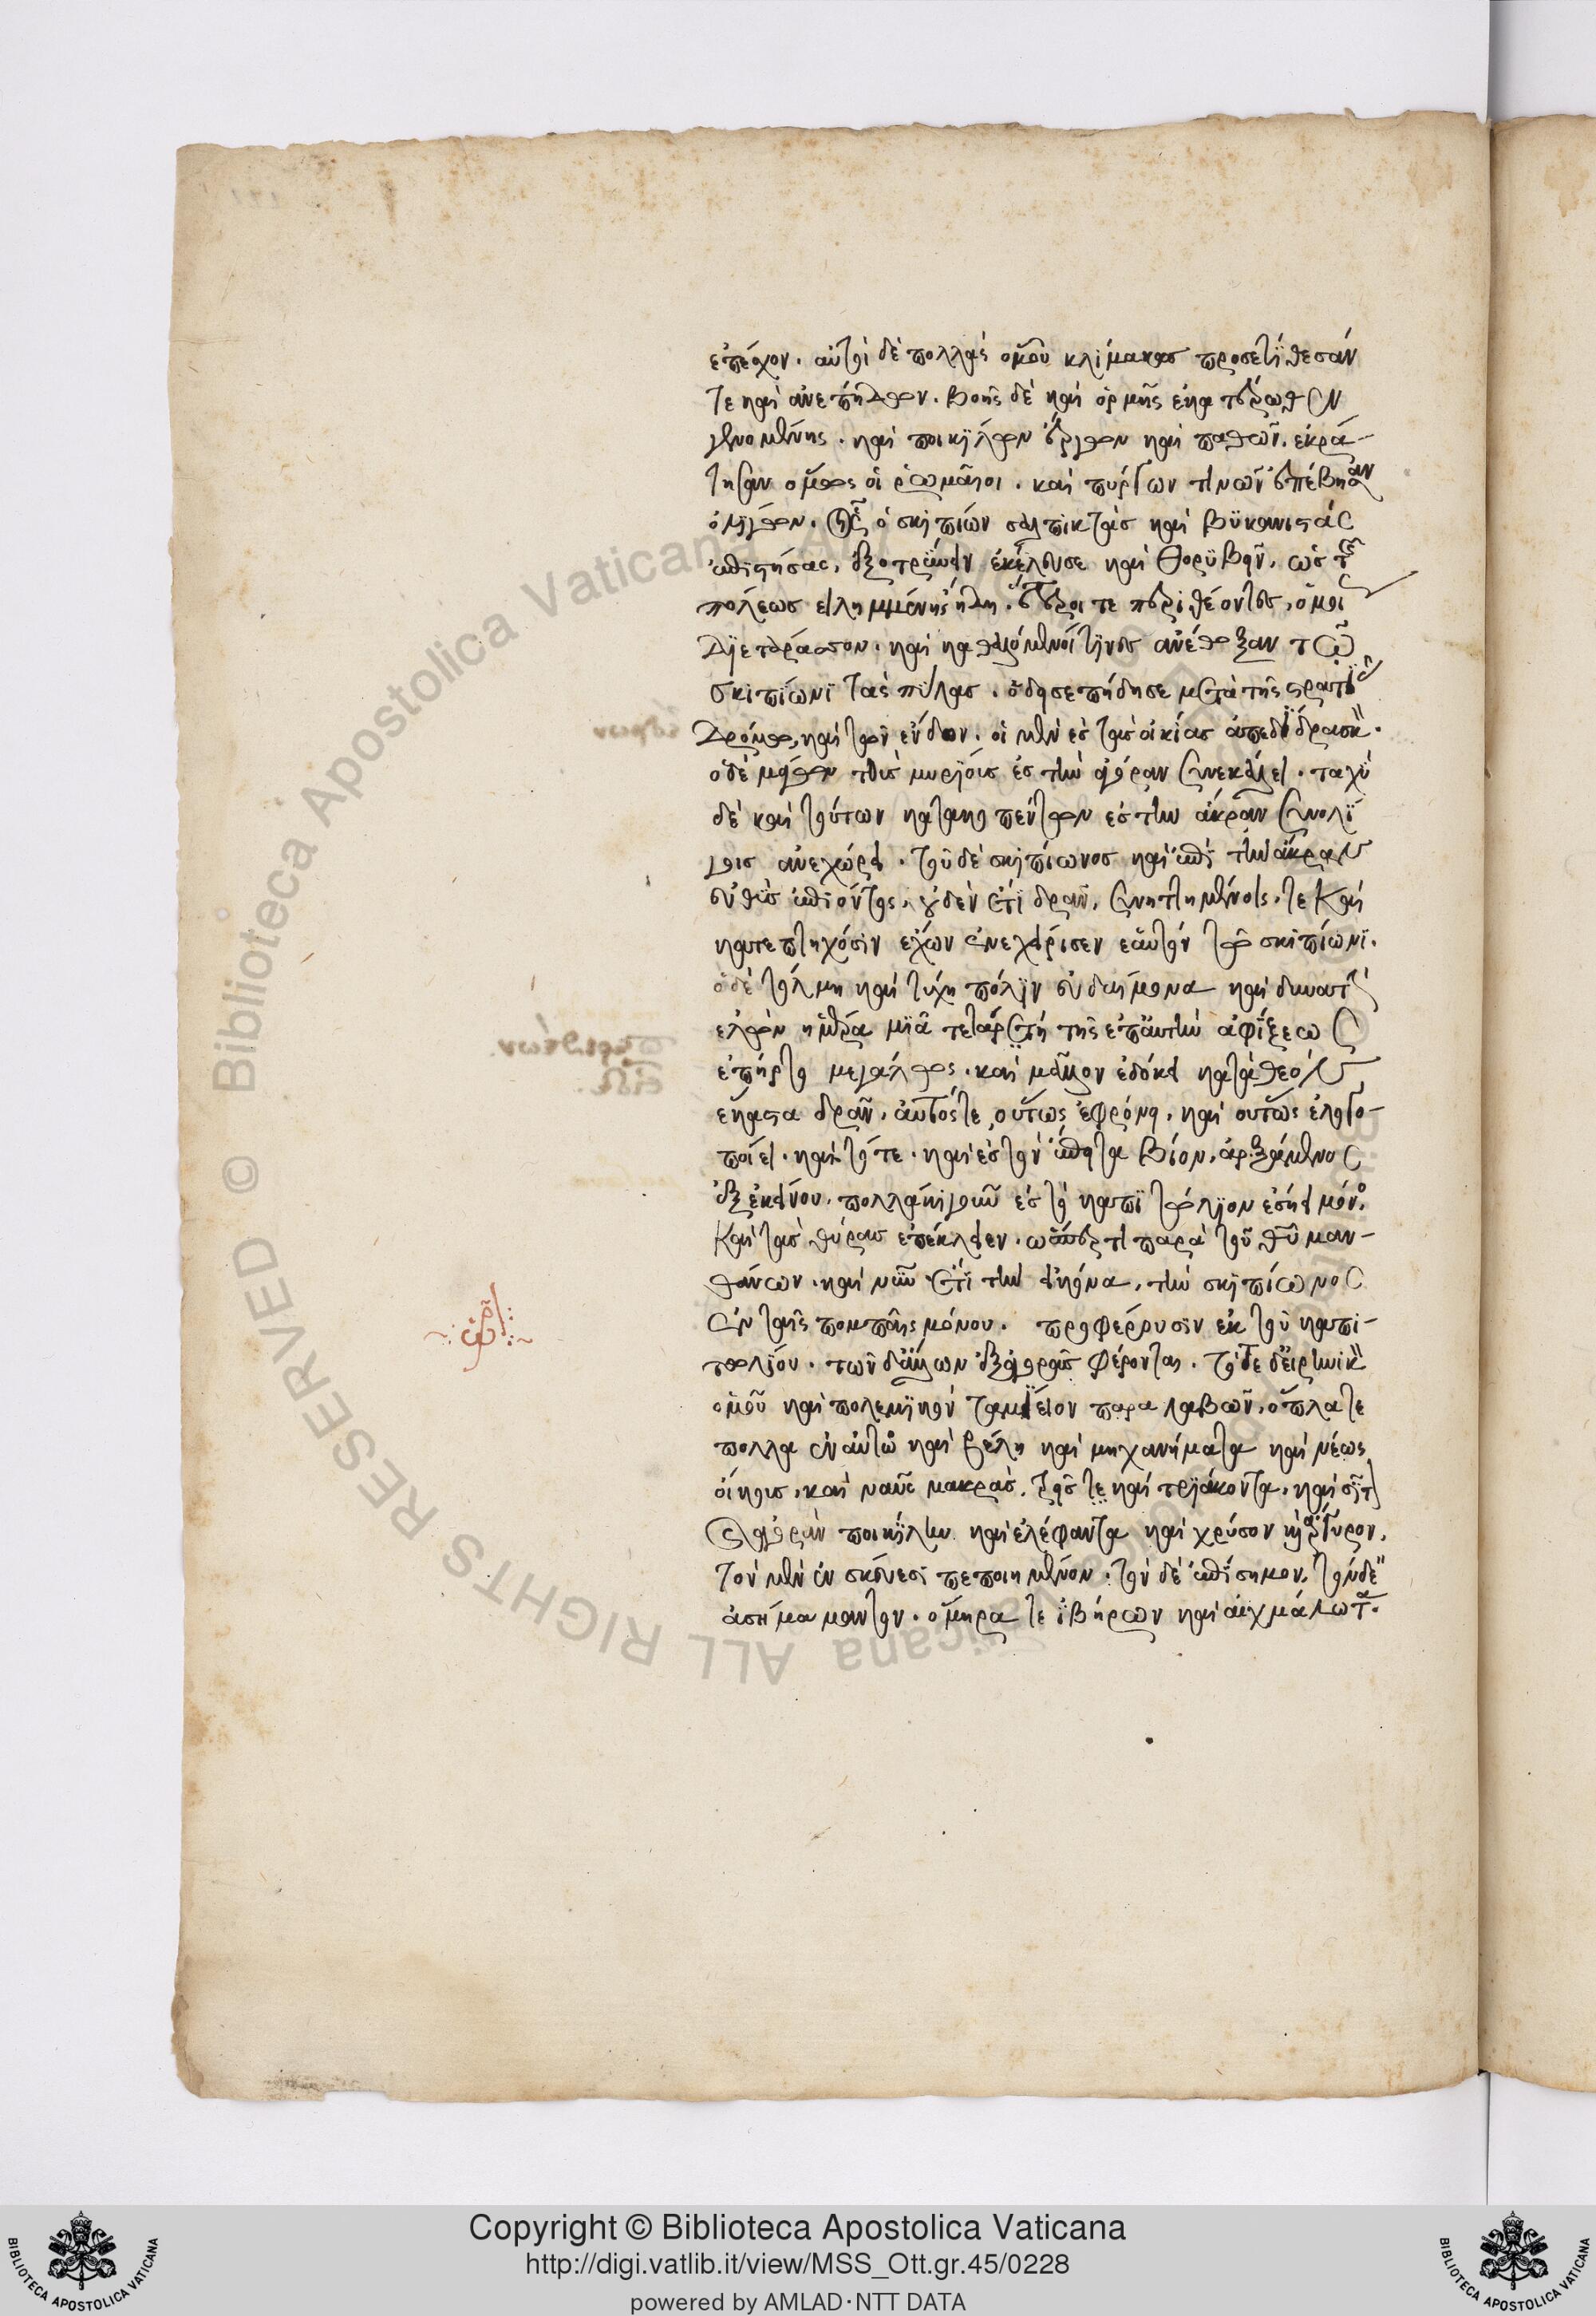 ἐπέχον. αὐτοὶ δὲ πολλὰς ὁμοῦ κλίμακας προσετίθεσάν
τε καὶ ἀνεπήδων. βοῆς δὲ καὶ ὁρμῆς ἑκατέρωθεν
γενομένης. καὶ ποικίλων ἔργων καὶ παθῶν. ἐκρά-
τησαν ὅμως οἱ ῥωμαῖοι. καὶ πύργων τινῶν ἐπέβησαν
ὀλίγων. οἷς ὁ σκιπίων σαλπικτὰς καὶ βυκανιστὰς
ἐπιστήσας, ἐξοτρύνειν ἐκέλευσε καὶ θορυβεῖν, ὡς τῆς
πόλεως εἰλημμένης ἤδη. ἕτεροι τε περιθέοντες, ὁμοί
διετάρασσον. καὶ καθαλόμενοί τινες ἀνέωξαν τῶ
σκιπίωνι τὰς πύλας. ὁ δ' ἐσεπήδησε μετὰ τῆς στρατιᾶς
δρόμω, καὶ τῶν ἔνδων. οἱ μὲν ἐς τὰς οἰκίας ἀπεδίδρασκον.
ὁ δὲ μάγων τοὺς μυρίους ἐς τὴν ἀγορὰν συνεκάλει. ταχὺ
δὲ καὶ τούτων κατακοπέντων ἐς τὴν ἄκραν σὺν ὀλί
γοις ἀνεχώρει. τοῦ δὲ σκιπίωνος καὶ ἐπὶ τὴν ἄκραν
εὐθὺς ἐπιόντος, οὐδὲν ἔτι δρᾶν, συνηττημένοις, τε καὶ
κατεπτηχόσιν ἔχων ἐνεχείρισεν ἑαυτὸν τῶ σκιπίωνι.
ὁ δὲ τόλμη καὶ τύχη πόλιν εὐδαίμονα καὶ δυνατὴν
ἑλὼν ἡμέρα μιᾶ τετάρτη τῆς ἐπ' αὐτὴν ἀφίξεως
ἐπῆρτο μεγάλως. καὶ μᾶλλον ἐδόκει κατὰ θεὸν
ἕκαστα δρᾶν. αὐτός τε, οὕτως ἐφρόνει, καὶ οὕτως ἐλογο-
ποίει. καὶ τότε. καὶ ἐς τὸν ἔπειτα βίον, ἀρξάμενος
ἐξ ἐκείνου. πολλάκις γοῦν ἐς τὸ καπιτώλιον ἐσήει μόνος
καὶ τὰς θύρας ἐπέκλειεν. ὥσπερ τι παρὰ τοῦ θεοῦ μαν-
θάνων. καὶ νῦν ἔτι τὴν εἰκόνα, τὴν σκιπίωνος
ἐν ταῖς πομπαῖς μόνου. προφέρουσιν ἐκ τοῦ καπι-
τωλίου. τῶν δ' ἄλλων ἐξ ἀγορᾶς φέρονται. τότε δ' εἰρηνικὸν
ὁμοῦ καὶ πολεμικὸν ταμιεῖον παραλαβών, ὅπλα τε
πολλὰ ἐν αὐτῶ καὶ βέλη καὶ μηχανήματα καὶ νέως
οἴκους, καὶ ναῦς μακρὰς, τρεῖς τε καὶ τριάκοντα, καὶ σῖτον
καὶ ἀγορὰν ποικίλην καὶ ἐλέφαντα καὶ χρύσον καὶ ἄργυρον,
τὸν μὲν ἐν σκεύεσι πεποιημένον. τὸν δὲ ἐπίσημον, τὸν δὲ
ἀσήμαμαντον. ὅμηρα τε ἰβήρων καὶ αἰχμάλωτα.
© Biblioteca Apostolica Vaticana ALL RIGHTS RESERVED
Copyright © Biblioteca Apostolica Vaticana
http://digi.vatlib.it/view/MSS_Ott.gr.45/0228
powered by AMLAD·NTT DATA
BIBLIOTECA APOSTOLICA VATICANA
BIBLIOTECA APOSTOLICA VATICANA